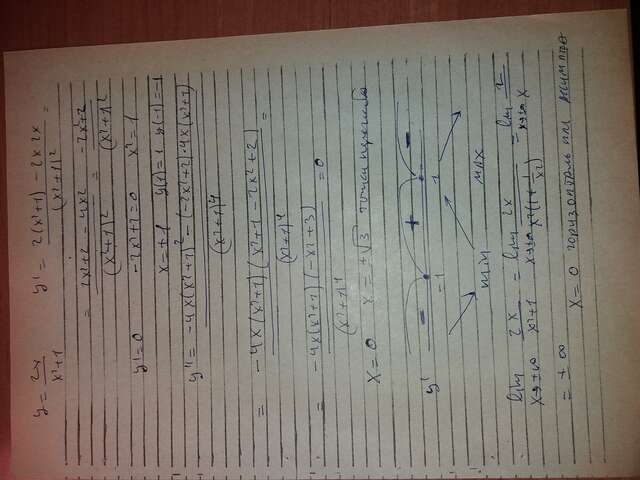 y = 2x/(x²+1) y' = (2(x²+1) - 2x 2x)/(x²+1)² =
= (2x²+2 - 4x2)/(x²+1)² = (-2x²+2)/(x²+1)²
y'=0 -2x²+2=0 x²=1
x=±1 y(1)=1 y(-1)=-1
y'' = (-4x(x²+1)² - (-2x²+2)·4x(x²+1))/(x²+1)⁴
= (-4x(x²+1)(x²+1-2x²+2))/(x²+1)⁴ =
= (-4x(x²+1)(-x²+3))/(x²+1)⁴ = 0
x=0 x=±√3 точки перегиба
y' - -1 + 1 -
min max
lim x→±∞ 2x/(x²+1) = lim x→±∞ 2x/(x²(1+1/x2)) = lim x→±∞ 2/x
= ±∞ x=0 горизонтальная асимптота